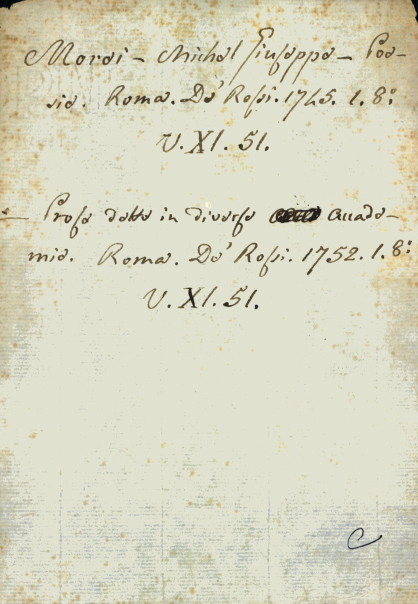 Morei - Michel Giuseppe - Poe-
sie. Roma. De' Rossi. 1745. 1. 8°:
V. XI. 51.
- Prose dette in diverse Accade-
mie. Roma. De' Rossi. 1752. 1. 8°:
V. XI. 51.
C